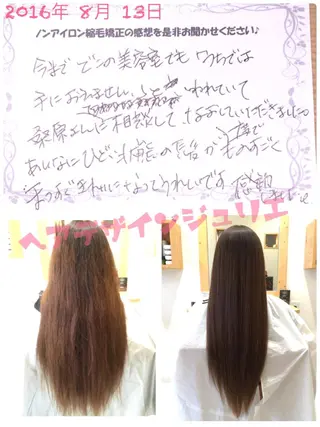 2016年 8月 13日
ノンアイロン縮毛矯正の感想を是非お聞かせください♪
今までどこの美容室でもウチでは
手におえません、と いわれていて
桑原さんに相談して なおしていただきました
あんなにひどい状態の髪が 1度で ものすごく
まっすぐきれいになってうれしいです 感動
ヘアデザインジュリエ